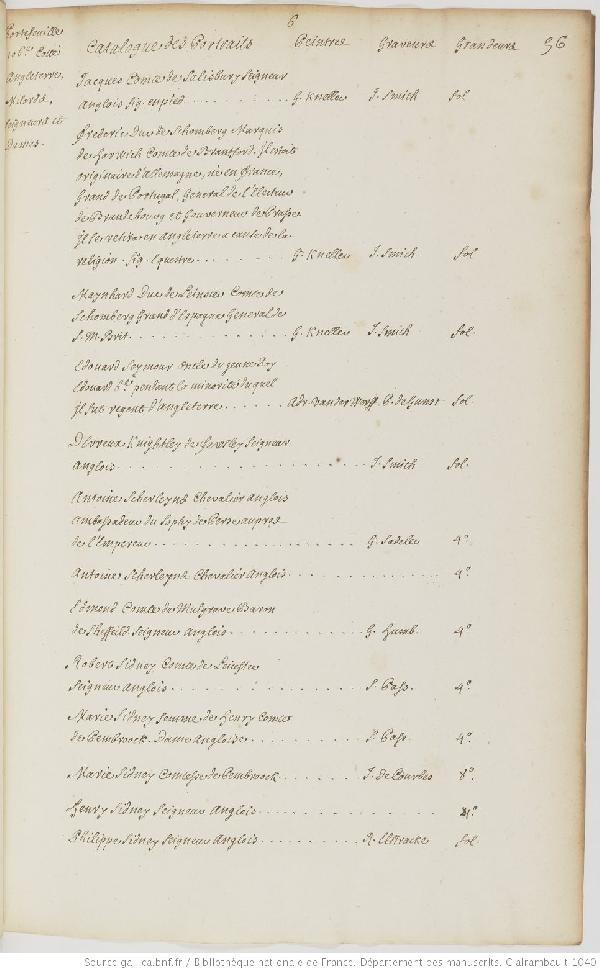 6
Catalogue des Portraits Peintres Graveurs Grandeurs 96
Portefeuille
Angleterre,
Milords,
Seigneurs et
Dames.
Jacques Comte de Salisbury Seigneur
anglois fig. en pied . . . . . . . . . G. Kneller J. Smith fol.
Frederic Duc de Schomberg Marquis
de Harwich Comte de Brantford. Il etoit
originaire d'allemagne, né en france,
Grand de Portugal, General de l'Electeur
de Brandebourg et Gouverneur de Prusse
il se retira en angleterre a cause de la
religion. fig. Equestre . . . . . . . G. Kneller J. Smith fol.
Maynhard Duc de Leinster Comte de
Schomberg Grand d'Espagne General de
S. M. Brit. . . . . . . . . . . . . G. Kneller J. Smith fol.
Edouard Seymour oncle du jeune Roy
Edouard 6.e pendant la minorité duquel
il fut regent d'angleterre . . . . . . Adr. vander Werff P. de Gunst fol.
Devreux Knightley de Fawsley Seigneur
anglois . . . . . . . . . . . . . . . J. Smith fol.
Antoine Scherleyns Chevalier anglois
ambassadeur du Sophy de Perse aupres
de l'Empereur . . . . . . . . . . . . G. Sadeler 4.o
Antoine Scherleyns Chevalier Anglois . . . . . . . . . 4.o
Edmond Comte de Mulgrave Baron
de Sheffeild Seigneur anglois . . . . . . . G. Humb. 4.o
Robert Sidney Comte de Leicester
Seigneur anglois . . . . . . . . . . . S. Pass. 4.o
Marie Sidney femme de Henry Comte
de Pembroock. Dame Angloise . . . . . . . S. Pass. 4.o
Marie Sidney Comtesse de Pembroock . . . . . . J. de Courbes 8.o
Henry Sidney Seigneur Anglois . . . . . . . . 4.o
Philippe Sidney Seigneur Anglois . . . . . . . R. Elstracke fol.
Source gallica.bnf.fr / Bibliothèque nationale de France. Département des manuscrits. Clairambault 1040